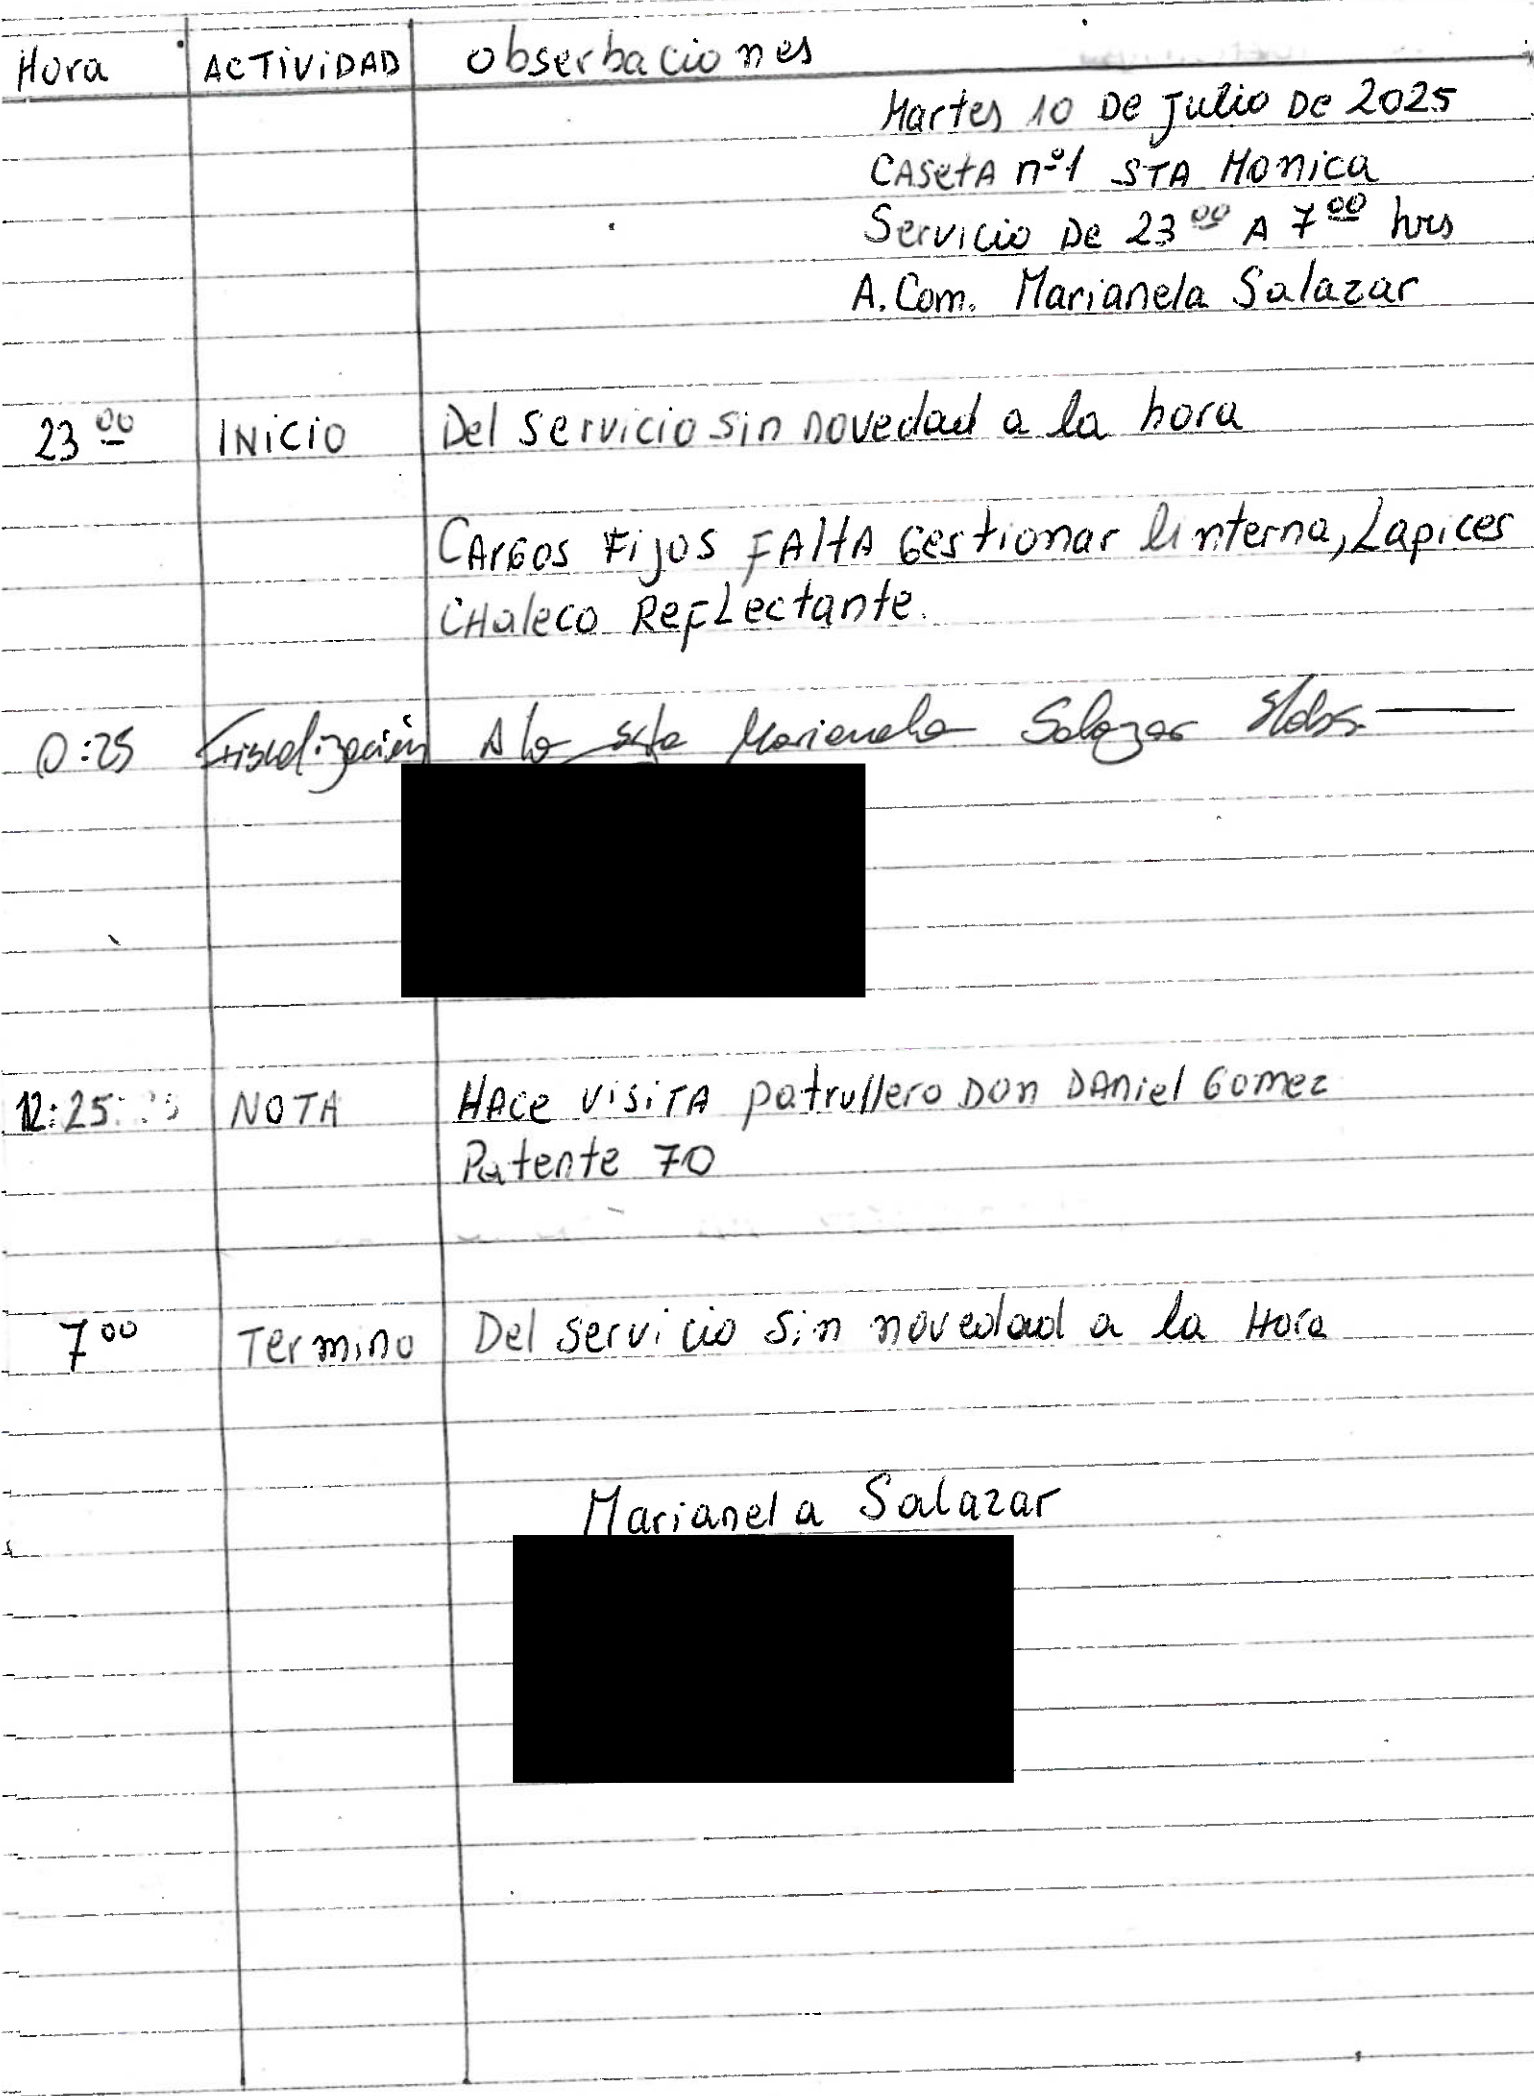 Hora ACTIVIDAD Obserbaciones
Martes 10 De Julio De 2025
CASetA nº1 STA MONICA
Servicio De 23 00 A 7 00 hrs
A. Com. Marianela Salazar
23 00 INICIO Del Servicio sin novedad a la hora
CArGos Fijos FAltA Gestionar linterna, Lapices
CHaleco RefLectante.
0:25 Fiscalización A la Srta Marianela Salazar
12:25 NOTA HAce VISITA patrullero Don DAniel Gomez
Patente 70
7 00 Termino Del Servicio Sin novedad a la Hora
Marianela Salazar